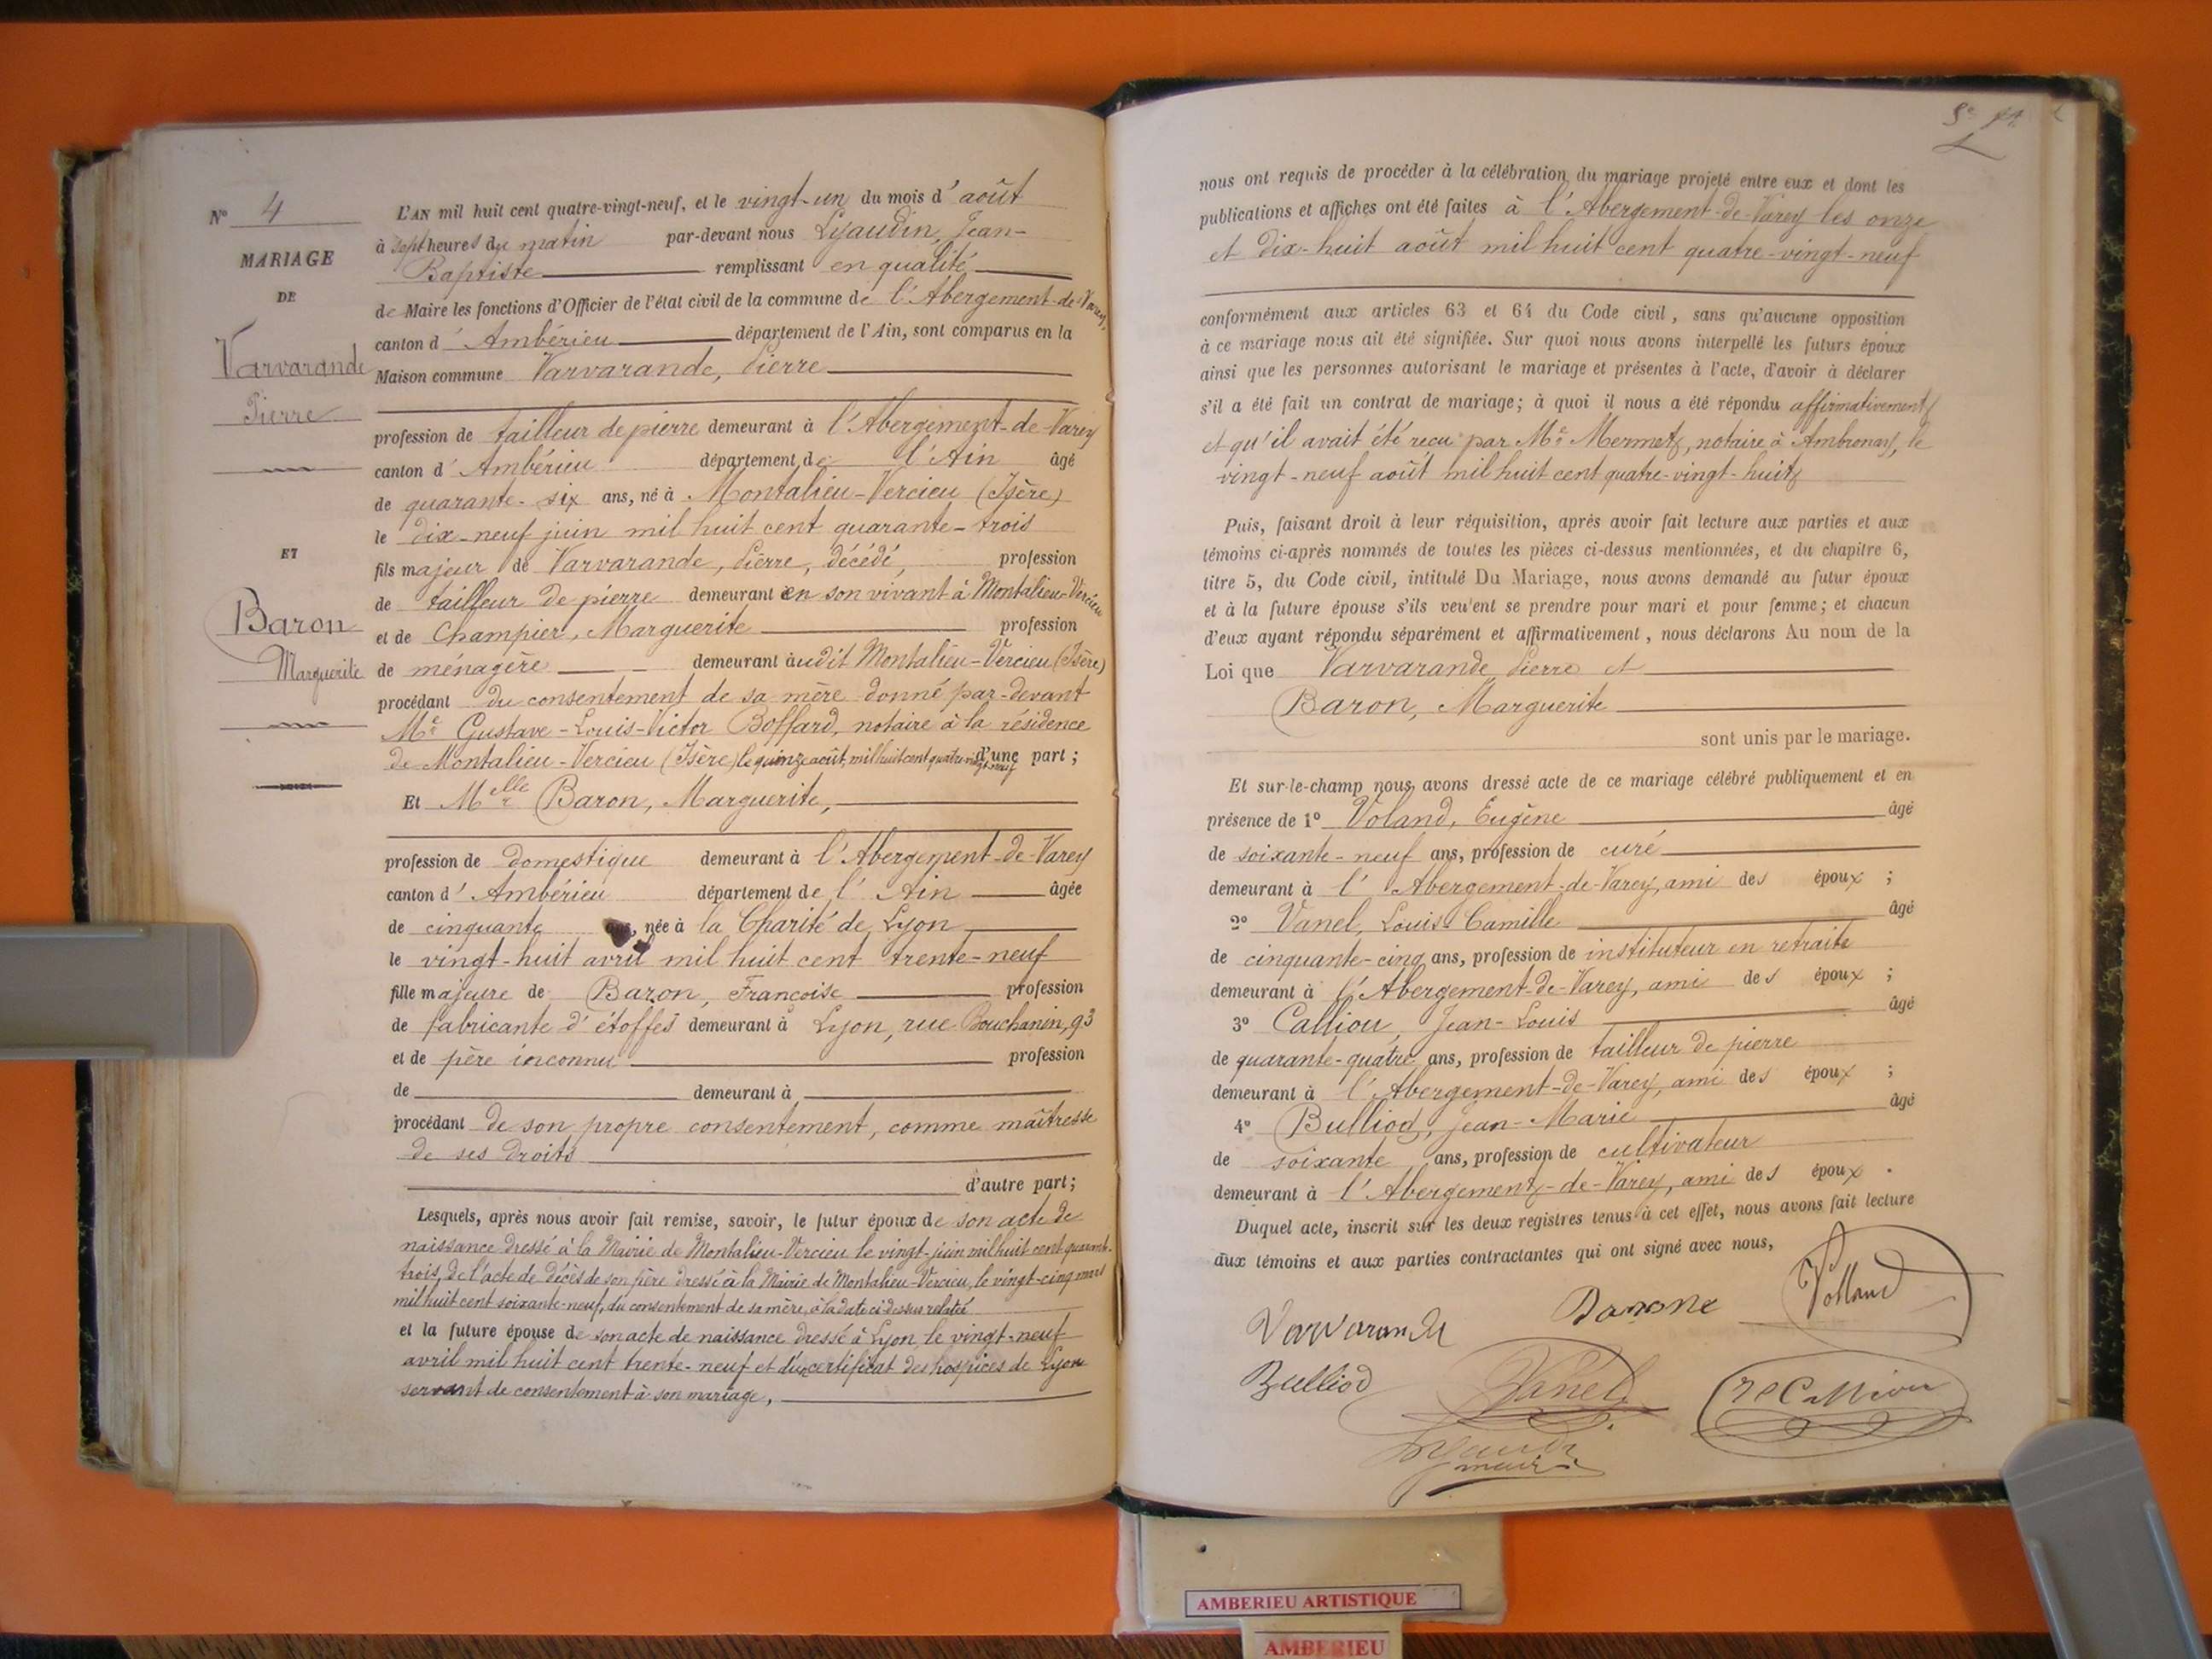 N° 4
MARIAGE
DE
Varvarande
Pierre
ET
Baron
Marguerite
L'AN mil huit cent quatre-vingt-neuf, et le vingt-un du mois d'août
à sept heures du matin par-devant nous Lyaudin, Jean-
Baptiste remplissant en qualité
de Maire les fonctions d'Officier de l'état civil de la commune de l'Abergement-de-Varey,
canton d'Ambérieu département de l'Ain, sont comparus en la
Maison commune Varvarande, Pierre
profession de tailleur de pierre demeurant à l'Abergement-de-Varey
canton d'Ambérieu département de l'Ain âgé
de quarante-six ans, né à Montalieu-Vercieu (Isère)
le dix-neuf juin mil huit cent quarante-trois
fils majeur de Varvarande, Pierre, décédé, profession
de tailleur de pierre demeurant en son vivant à Montalieu-Vercieu
et de Champier, Marguerite profession
de ménagère demeurant audit Montalieu-Vercieu (Isère)
procédant du consentement de sa mère donné par-devant
Me Gustave-Louis-Victor Boffard, notaire à la résidence
de Montalieu-Vercieu (Isère) le quinze août, mil huit cent quatre-vingt-neuf d'une part ;
Et Melle Baron, Marguerite,
profession de domestique demeurant à l'Abergement-de-Varey
canton d'Ambérieu département de l'Ain âgée
de cinquante ans, née à la Charité de Lyon
le vingt-huit avril mil huit cent trente-neuf
fille majeure de Baron, Françoise profession
de fabricante d'étoffes demeurant à Lyon, rue Bouchanin, 93
et de père inconnu profession
de demeurant à
procédant de son propre consentement, comme maîtresse
de ses droits
d'autre part ;
Lesquels, après nous avoir fait remise, savoir, le futur époux de son acte de
naissance dressé à la Mairie de Montalieu-Vercieu le vingt-juin mil huit cent quarante-
trois, de l'acte de décès de son père dressé à la Mairie de Montalieu-Vercieu, le vingt-cinq mars
mil huit cent soixante-neuf, du consentement de sa mère, à la date ci-dessus relatée
et la future épouse de son acte de naissance dressé à Lyon le vingt-neuf
avril mil huit cent trente-neuf et d'un certificat des hospices de Lyon
servant de consentement à son mariage,
nous ont requis de procéder à la célébration du mariage projeté entre eux et dont les
publications et affiches ont été faites à l'Abergement-de-Varey les onze
et dix-huit août mil huit cent quatre-vingt-neuf
conformément aux articles 63 et 64 du Code civil, sans qu'aucune opposition
à ce mariage nous ait été signifiée. Sur quoi nous avons interpellé les futurs époux
ainsi que les personnes autorisant le mariage et présentes à l'acte, d'avoir à déclarer
s'il a été fait un contrat de mariage ; à quoi il nous a été répondu affirmativement
et qu'il avait été reçu par Me Mermet, notaire à Ambronay, le
vingt-neuf août mil huit cent quatre-vingt-huit
Puis, faisant droit à leur réquisition, après avoir fait lecture aux parties et aux
témoins ci-après nommés de toutes les pièces ci-dessus mentionnées, et du chapitre 6,
titre 5, du Code civil, intitulé Du Mariage, nous avons demandé au futur époux
et à la future épouse s'ils veulent se prendre pour mari et pour femme ; et chacun
d'eux ayant répondu séparément et affirmativement, nous déclarons Au nom de la
Loi que Varvarande Pierre et
Baron, Marguerite
sont unis par le mariage.
Et sur-le-champ nous avons dressé acte de ce mariage célébré publiquement et en
présence de 1° Voland, Eugène âgé
de soixante-neuf ans, profession de curé
demeurant à l'Abergement-de-Varey, ami des époux ;
2° Vanel, Louis Camille âgé
de cinquante-cinq ans, profession de instituteur en retraite
demeurant à l'Abergement-de-Varey, ami des époux ;
3° Calliou, Jean-Louis âgé
de quarante-quatre ans, profession de tailleur de pierre
demeurant à l'Abergement-de-Varey, ami des époux ;
4° Bulliod, Jean-Marie âgé
de soixante ans, profession de cultivateur
demeurant à l'Abergement-de-Varey, ami des époux.
Duquel acte, inscrit sur les deux registres tenus à cet effet, nous avons fait lecture
aux témoins et aux parties contractantes qui ont signé avec nous,
Varvarande
Volland
Bulliod
Vanel
AMBERIEU ARTISTIQUE
AMBERIEU